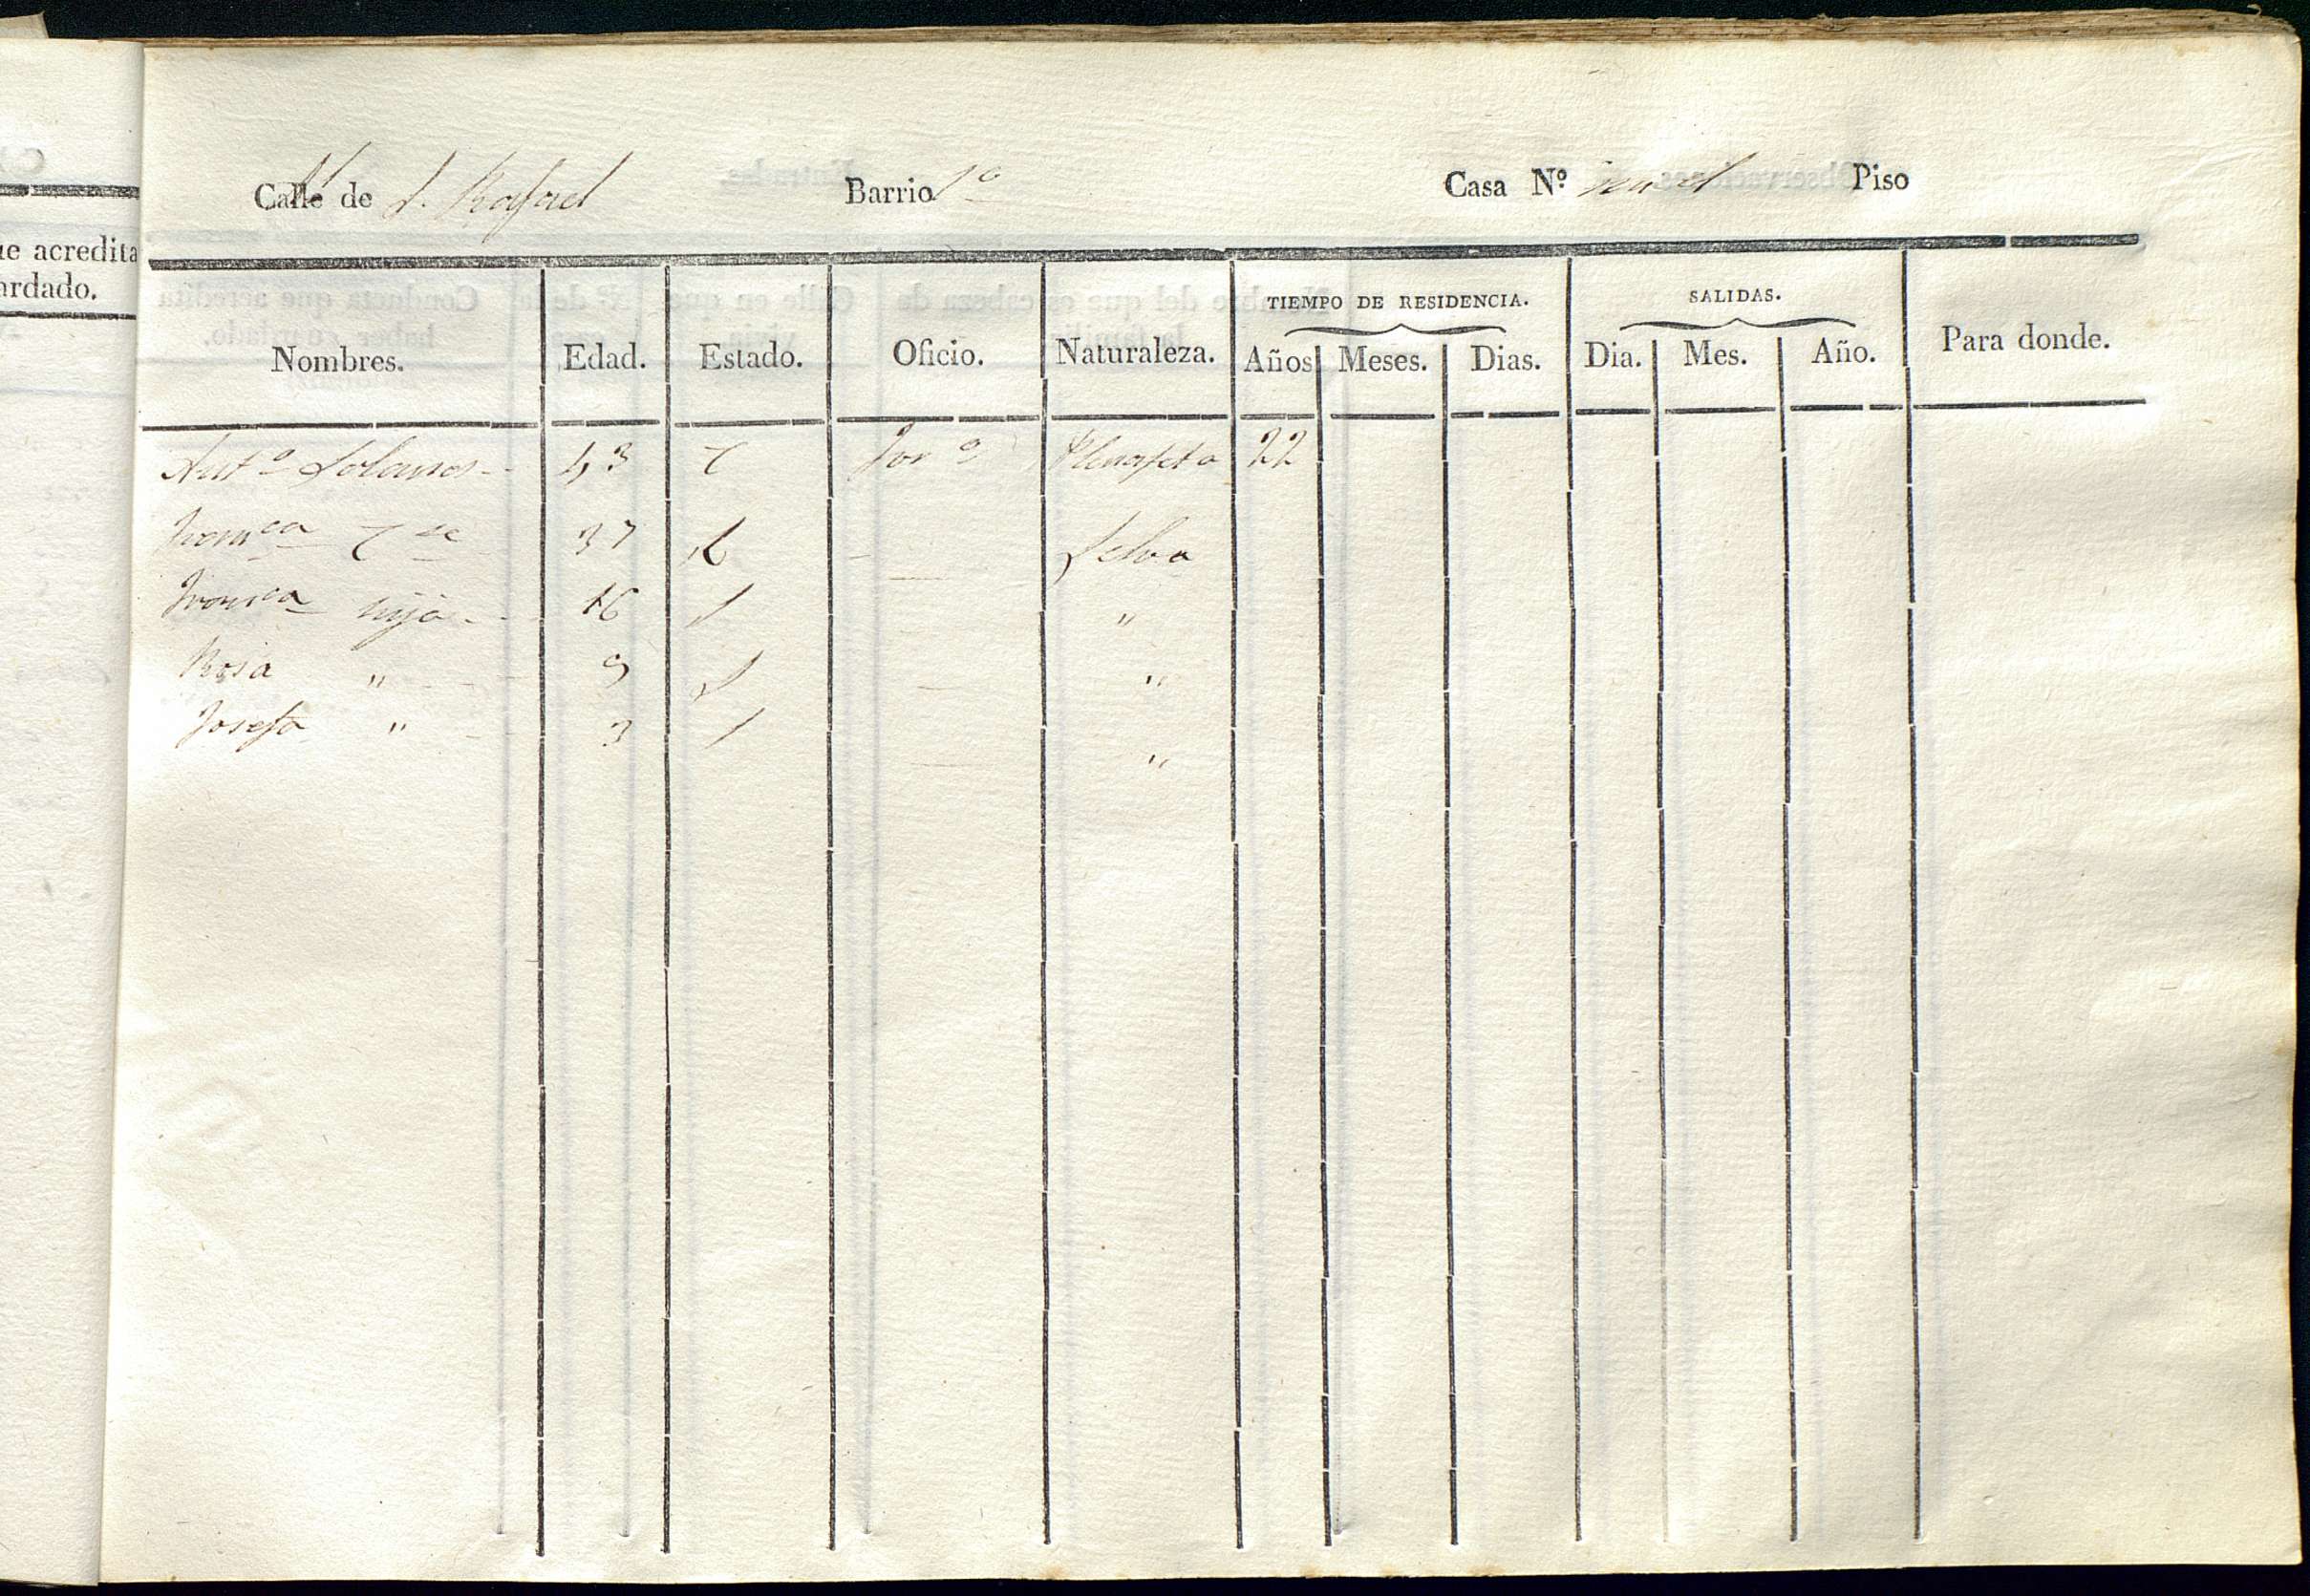 Calle de S. Rafael Barrio 1º Casa Nº Piso
ue acredita
ardado.
TIEMPO DE RESIDENCIA. SALIDAS.
Nombres. Edad. Estado. Oficio. Naturaleza. Años Meses. Dias. Dia. Mes. Año. Para donde.
Antº Solanes 43 C Jorº 22
Franca 37 Selva
Franca hija 16 S "
Rosa " 9 S "
Josefa " 3 S "